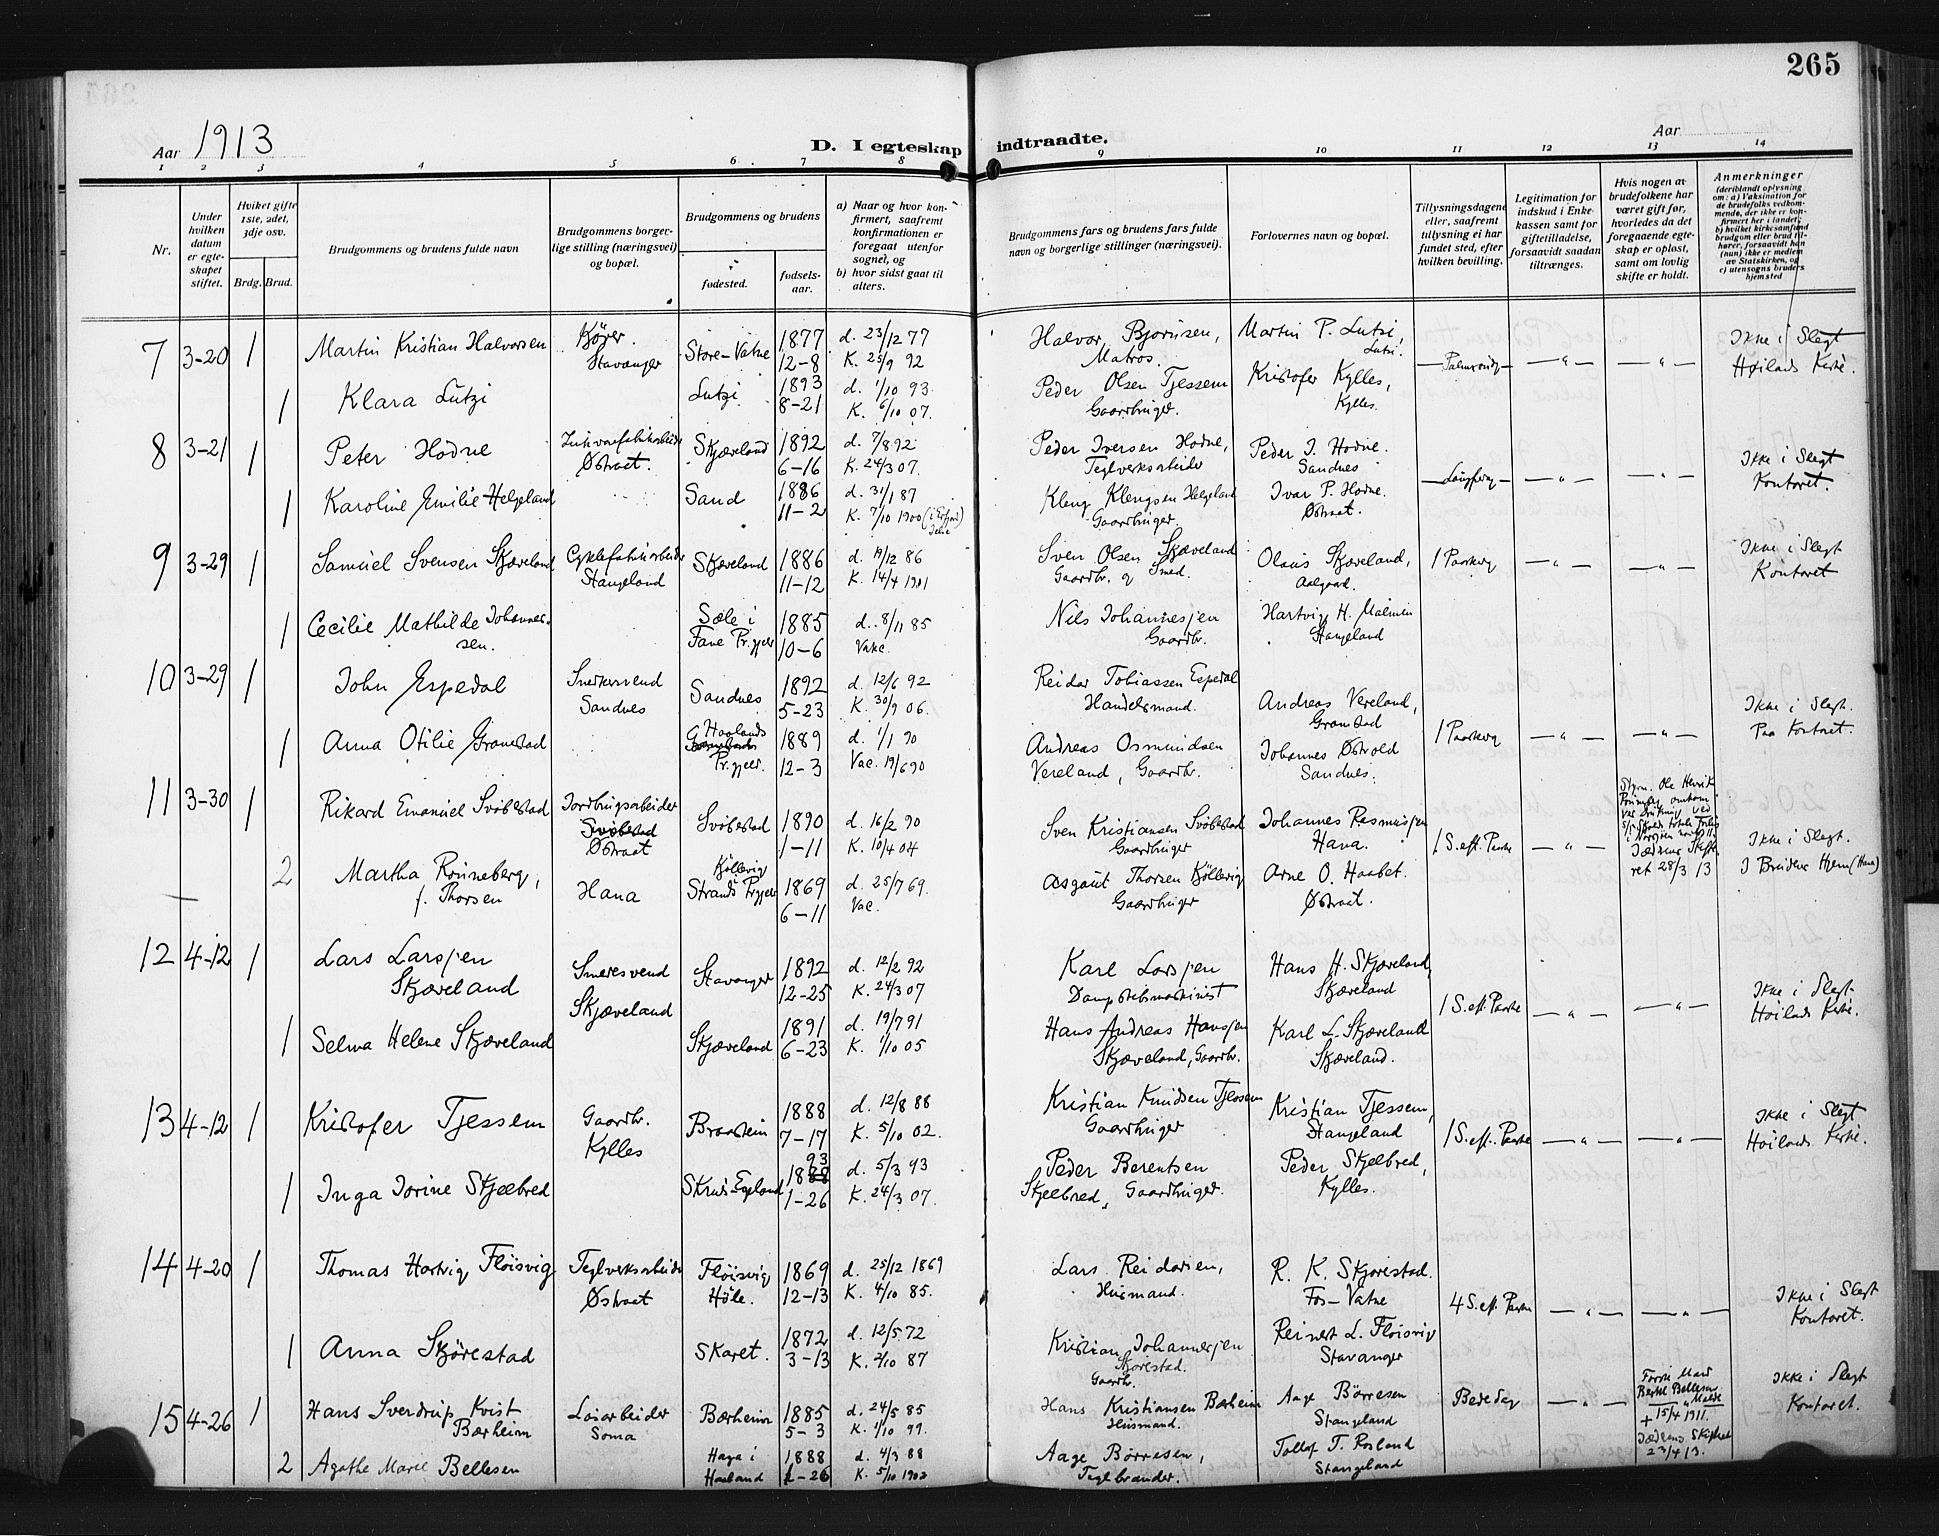 265
Aar 1913
D. I egteskap indtraadte.
Aar
1 2 3 4 5 6. 7 8 9 10 11 12 13 14
Nr.
Under hvilken datum er egteskapet stiftet.
Hviket gifte 1ste, 2det, 3dje osv.
Brdg. Brud.
Brudgommens og brudens fulde navn
Brudgommens borgerlige stilling (næringsvei) og bopæl.
Brudgommens og brudens
fødested.
fødselsaar.
a) Naar og hvor konfirmert, saafremt konfirmationen er foregaat utenfor sognet, og
b) hvor sidst gaat til alters.
Brudgommens fars og brudens fars fulde navn og borgerlige stillinger (næringsvei).
Forlovernes navn og bopæl.
Tillysningsdagene eller, saafremt tillysning ei har fundet sted, efter hvilken bevilling.
Legitimation for indskud i Enkekassen samt for giftetilladelse, forsaavidt saadan tiltrænges.
Hvis nogen av brudefolkene har været gift før, hvorledes da det foregaaende egteskap er opløst, samt om lovlig skifte er holdt.
Anmerkninger
(deriblandt oplysning om: a) Vaksination for de brudefolks vedkommende, der ikke er konfirmert her i landet; b) hvilket kirkesamfund brudgom eller brud tilhører, forsaavidt han (hun) ikke er medlem av Statskirken, og c) utensogns bruders hjemsted
7 3-20 1 Martin Kristian Halvorsen Kjører. Stavanger Store-Vatne 1877 12-8 d. 23/12 77 K. 25/9 92 Halvor Bjornsen, Matros. Martin P. Lutsi, Lutsi. — Palmsøndg — — " — — " — Ikke i Slegt Høilands Kirke.
1 Klara Lutsi Lutsi 1893 8-21 d. 1/10 93. K. 6/10 07. Peder Olsen Tjessem Gaardbruger. Kristofer Kylles, Kylles.
8 3-21 1 Peter Hodne Østraat. Skjæveland 1892 6-16 d. 7/8 92 K. 24/3 07. Peder Iversen Hodne, Teglverksarbeider Peder I. Hodne. Sandnes — Langfredg — — " — — " — Ikke i Slegt Kontoret.
1 Karoline Emilie Helgeland Sand 1886 11-2 d. 31/1 87 K. 7/10 1900 Kleng Klengsen Helgeland Gaardbruger. Ivar P. Hodne. Østraat.
9 3-29 1 Samuel Svensen Skjæveland Cyklefabrikarbeider Stangeland Skjæveland 1886 11-12 d. 19/12 86 K. 14/4 1901 Sven Olsen Skjæveland Gaardbr. og Smed. Olaus Skjæveland, Aalgaard. 1 Paaskedg — " — — " — Ikke i Slegt Kontoret
1 Cecilie Mathilde Johannessen. Sæle i Fane Pr.gjeld 1885 10-6 d. 8/11 85 Vakc. Nils Johannesjen Gaardbr. Hartvig H. Malmin Stangeland
10 3-29 1 John Espedal Snekersvend Sandnes Sandnes 1892 5-23 d. 12/6 92 K. 30/9 06. Reidar Tobiassen Espedal Handelsmand. Andreas Vereland, Gramstad 1 Paaskedg — " — — " — Ikke i Slegt. Paa Kontoret.
1 Anna Otilie Gramstad Haalands Pr.gjeld. 1889 12-3 d. 1/1 90 Vac. 19/6 90 Andreas Osmundsen Vereland, Gaardbr. Johannes Østvold Sandnes.
11 3-30 1 Rikard Emanuel Svibestad Jordbrugsarbeider Svibestad Østraat Svibestad 1890 1-11 d. 16/2 90 K. 10/4 04 Sven Kristiansen Svibestad Gaardbruger Johannes Rasmusjen Hana. 1 S. eft. Paaske — " — Styrm. Ole Henrik Rønneberg omkom ved Drukning ved Jædrens Skifteret 28/3 13 Ikke i Slegt. I Brudens Hjem (Hana)
2 Martha Rønneberg, f. Thorsen Hana Kjøllevig i Strands Pr.gjeld 1869 6-11 d. 25/7 69. Vac. Asgaut Thorsen Kjøllevig Gaardbruger Arne O. Haabet. Østraat.
12 4-12 1 Lars Larsjen Skjæveland Smedesvend Skjæveland Stavanger 1892 12-25 d. 12/2 92 K. 24/3 07 Karl Larsjen Dampskibsmaskinist Hans H. Skjæveland, Skjæveland 1 S. eft. Paaske — " — — " — Ikke i Slegt. Høilands Kirke.
1 Selma Helene Skjæveland Skjæveland 1891 6-23 d. 19/7 91 K. 1/10 05 Hans Andreas Hansjen Skjæveland, Gaardbr. Karl L. Skjæveland Skjæveland.
13 4-12 1 Kristofer Tjessem Gaardbr. Kylles Braastein 1888 7-17 d. 12/8 88 K. 5/10 02. Kristian Knudsen Tjessem Gaardbruger Kristian Tjessem, Stangeland 1 S. eft. Paaske — " — — " — Ikke i Slegt Høilands Kirke.
1 Inga Jorine Skjelbred Skrus-Egeland 1893 1-26 d. 5/3 93 K. 24/3 07. Peder Berentsen Skjelbred, Gaardbruger. Peder Skjelbred, Kylles.
14 4-20 1 Thomas Hartvig Fløisvig Teglverksarbeider Østraat Fløisvig Høle. 1869 12-13 d. 25/12 1869 K. 4/10 85. Lars Reidarsen, Husmand. R. K. Skjørestad. Fos-Vatne 4 S. eft. Paaske — " — — " — Ikke i Slegt Kontoret.
1 Anna Skjørestad Skaret. 1872 3-13 d. 12/5 72 K. 2/10 87 Kristian Johannesjen Skjørestad. Gaardbr. Reinert L. Fløisvig Stavanger
15 4-26 1 Hans Sverdrup Kvist Bærheim Løsarbeider Soma Bærheim 1885 5-3 d. 24/5 85 K. 1/10 99. Hans Kristiansen Bærheim Husmand. Aage Børresen Stangeland Bededag — " — Første Mand Bertel Bellesen Malde + 15/4 1911. Jædrens Skifteret 23/4 13. Ikke i Slegt Kontoret.
2 Agathe Marie Bellesen Haga i Haaland 1888 1-26 d. 4/3 88 K. 5/10 1902 Aage Børresen, Teglbrænder. Tollef T. Rosland Stangeland